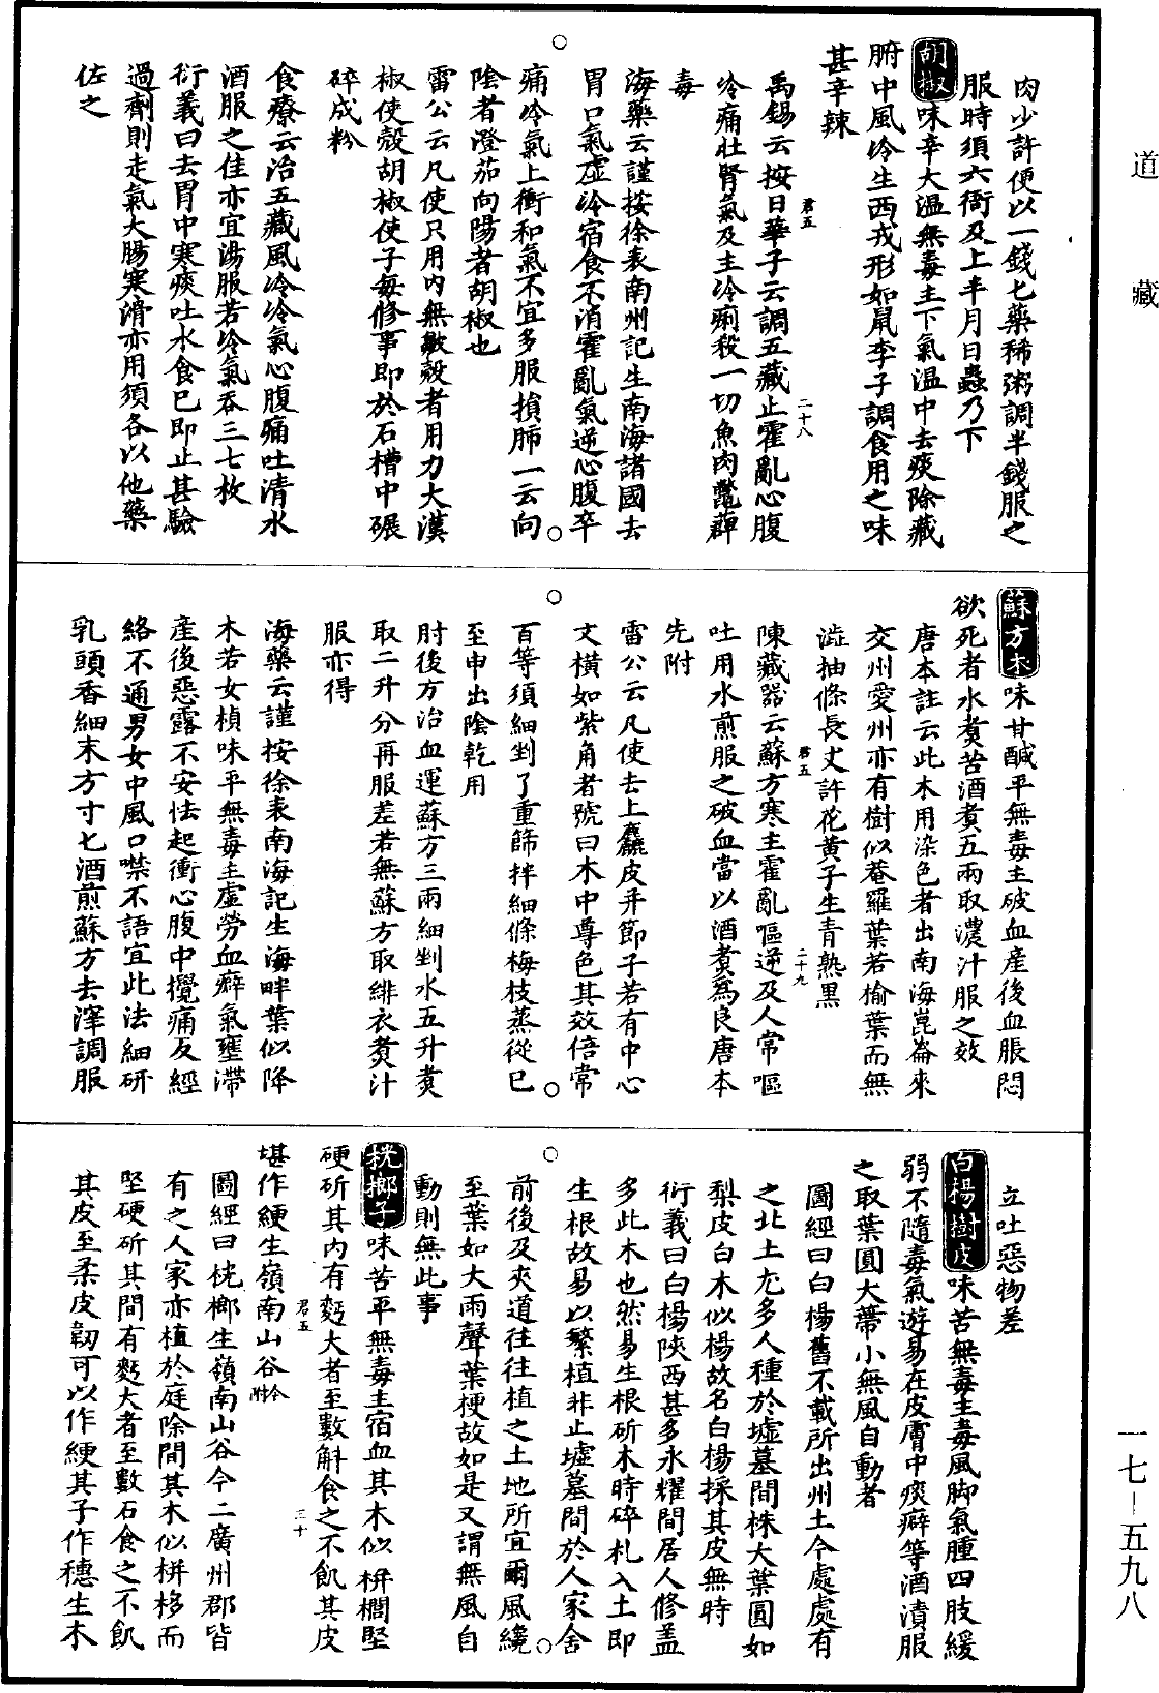 道藏
肉少許便以一錢匕藥稀粥調半錢服之
服時須六衙及上半月日蟲乃下
胡椒味辛大温無毒主下氣温中去痰除藏
腑中風冷生西戎形如鼠李子調食用之味
甚辛辣
禹錫云按日華子云調五藏止霍亂心腹
冷痛壯腎氣及主冷痢殺一切魚肉鼈蕈
毒
君五
二十八
海藥云謹按徐表南州記生南海諸國去
胃口氣虛冷宿食不消霍亂氣逆心腹卒
痛冷氣上衝和氣不宜多服損肺一云向
陰者澄茄向陽者胡椒也
雷公云凡使只用内無皺殼者用力大漢
椒使殼胡椒使子每修事即於石槽中碾
碎成粉
食療云治五藏風冷冷氣心腹痛吐清水
酒服之佳亦宜湯服若冷氣吞三七枚
衍義曰去胃中寒痰吐水食已即止甚驗
過劑則走氣大腸寒滑亦用須各以他藥
佐之
蘇方木味甘鹹平無毒主破血産後血脹悶
欲死者水煑苦酒煑五兩取濃汁服之效
唐本註云此木用染色者出南海崑崙來
交州愛州亦有樹似菴羅葉若榆葉而無
澁抽條長丈許花黄子生青熟黒
君五
二十九
陳藏器云蘇方寒主霍亂嘔逆及人常嘔
吐用水煎服之破血當以酒煑爲良唐本
先附
雷公云凡使去上麤皮并節子若有中心
文横如紫角者號曰木中尊色其效倍常
百等須細剉了重篩拌細條梅枝蒸從巳
至申出陰乾用
肘後方治血運蘇方三兩細剉水五升煑
取二升分再服差若無蘇方取緋衣煑汁
服亦得
海藥云謹按徐表南海記生海畔葉似降
木若女楨味平無毒主虛勞血癖氣壅滯
産後惡露不安怯起衝心腹中攪痛及經
絡不通男女中風口噤不語宜此法細研
乳頭香細末方寸匕酒煎蘇方去滓調服
立吐惡物差
白楊樹皮味苦無毒主毒風脚氣腫四肢緩
弱不隨毒氣遊易在皮膚中痰癖等酒漬服
之取葉圓大蔕小無風自動者
圖經曰白楊舊不載所出州土今處處有
之北土尤多人種於墟墓間株大葉圓如
梨皮白木似楊故名白楊採其皮無時
衍義曰白楊陜西甚多永耀間居人修盖
多此木也然易生根斫木時碎札入土即
生根故易以繁植非止墟墓間於人家舍
前後及夾道往往植之土地所宜爾風纔
至葉如大雨聲葉梗故如是又謂無風自
動則無此事
桄榔子味苦平無毒主宿血其木似栟櫚堅
硬斫其内有麪大者至數斛食之不飢其皮
堪作綆生嶺南山谷今附
君五
三十
圖經曰桄榔生嶺南山谷今二廣州郡皆
有之人家亦植於庭除間其木似栟栘而
堅硬斫其間有麪大者至數石食之不飢
其皮至柔皮韌可以作綆其子作穗生木
一七—五九八